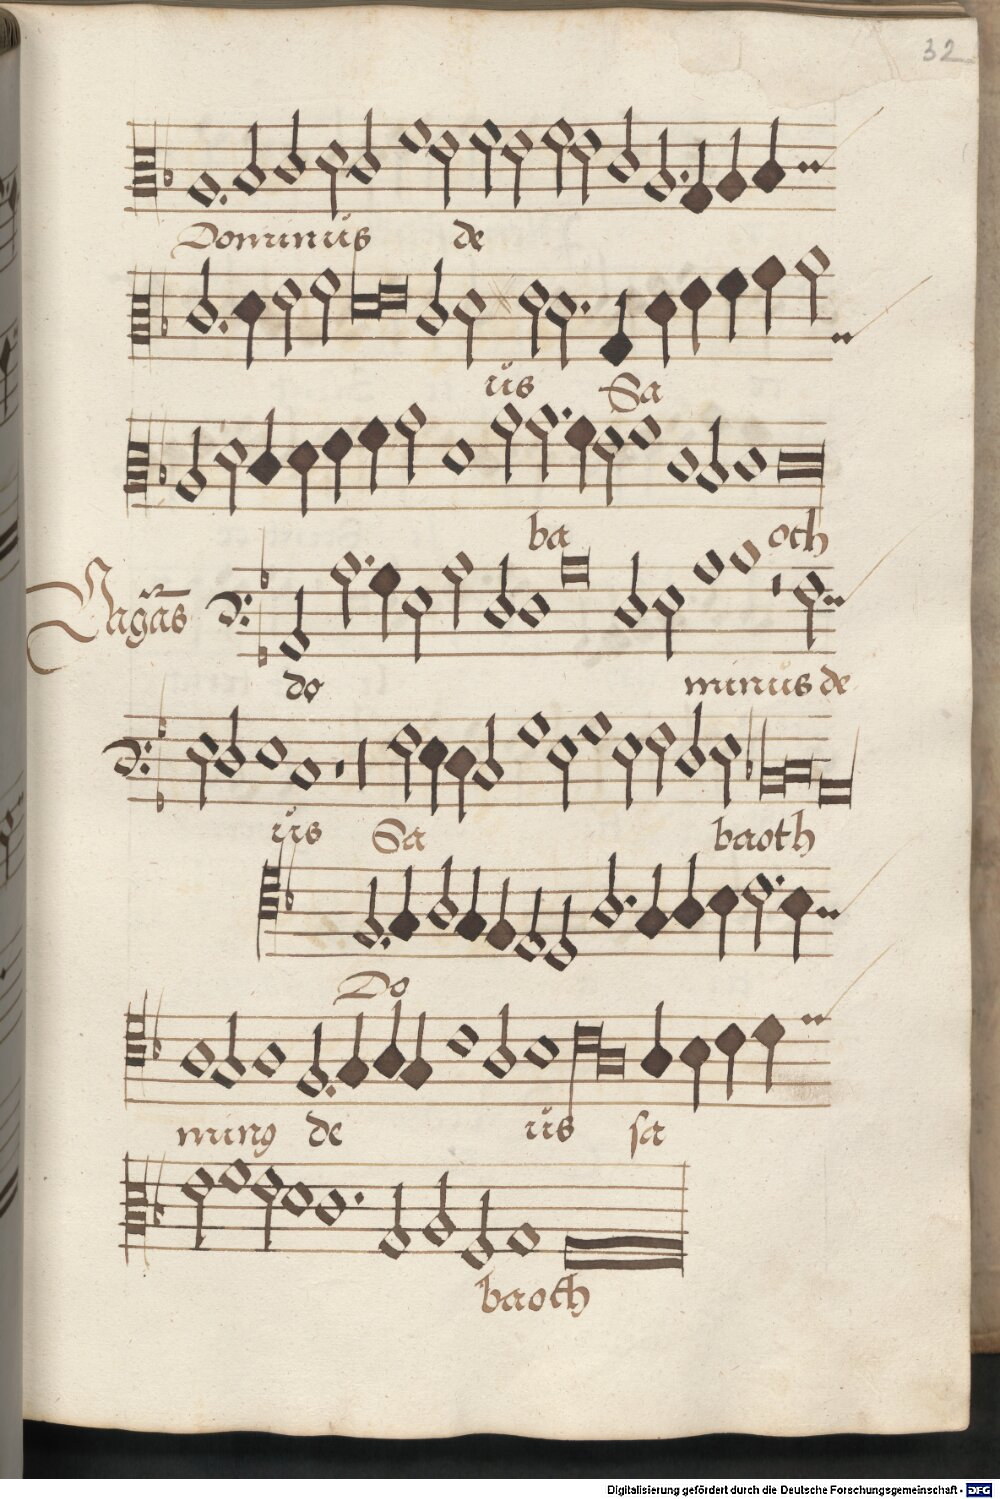 32
Dominus de
us Sa
ba oth
Vagãs do minus de
us Sa baoth
Do
minꝰ de us sa
baoth
Digitalisierung gefördert durch die Deutsche Forschungsgemeinschaft - DFG